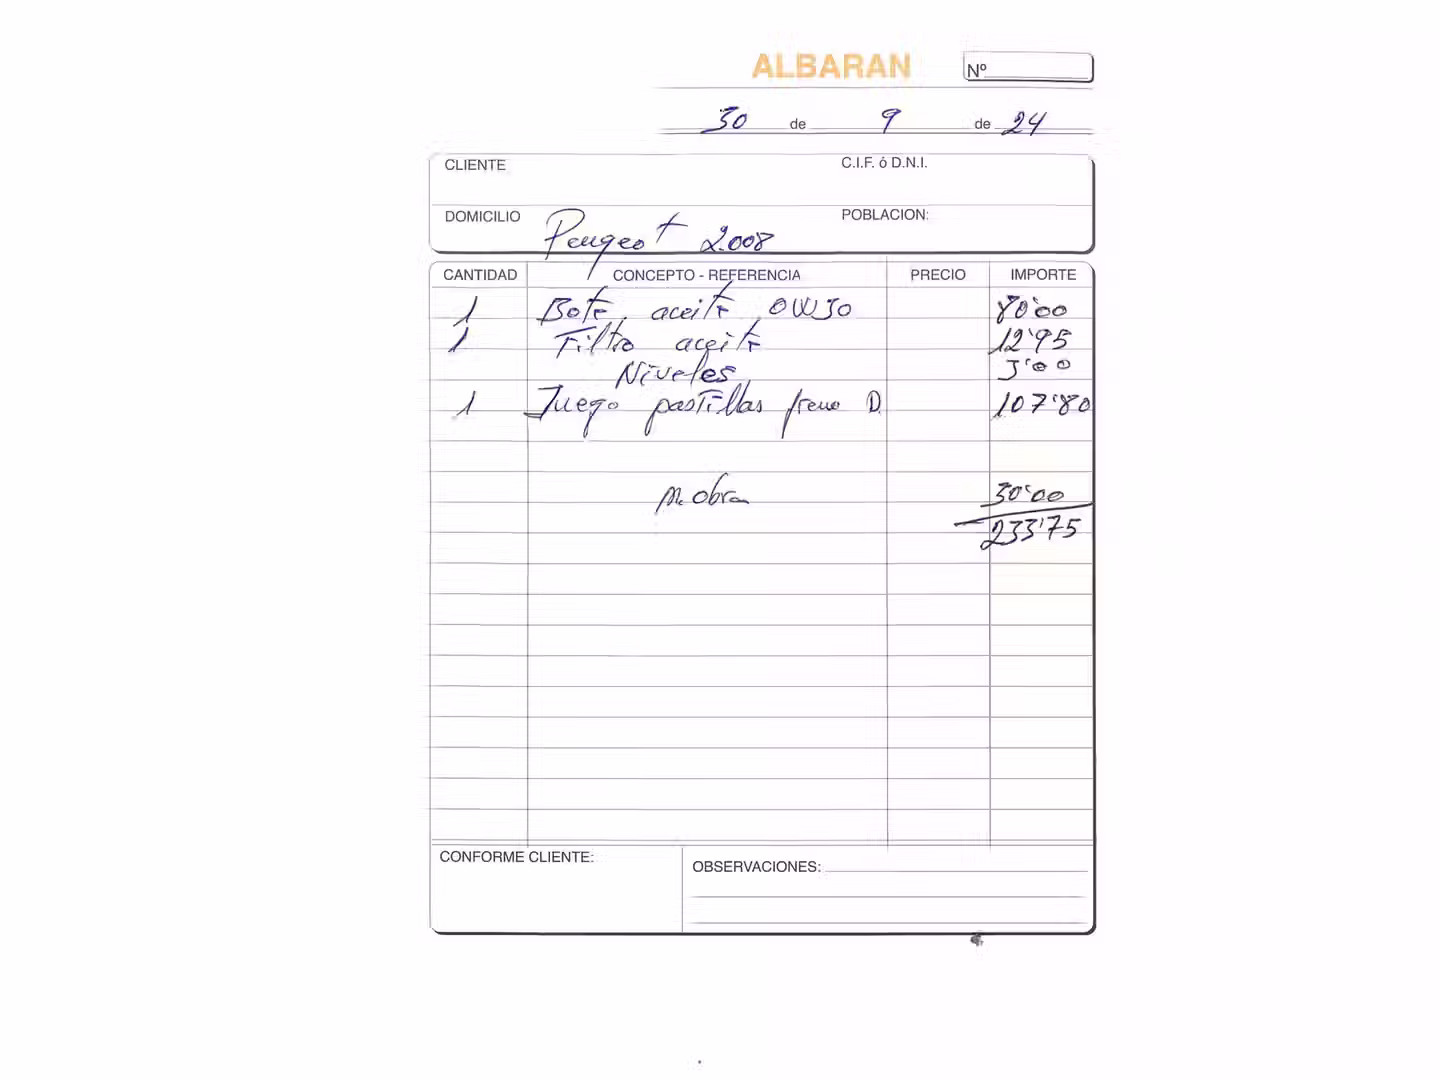 ALBARAN Nº
30 de 9 de 24
CLIENTE C.I.F. ó D.N.I.
DOMICILIO Peugeot 2008 POBLACION:
CANTIDAD CONCEPTO - REFERENCIA PRECIO IMPORTE
1 Bote aceite 0W30 80'00
1 Filtro aceite 12'95
Niveles 3'00
1 Juego pastillas freno D 107'80
M. obra 30'00
233'75
CONFORME CLIENTE: OBSERVACIONES: